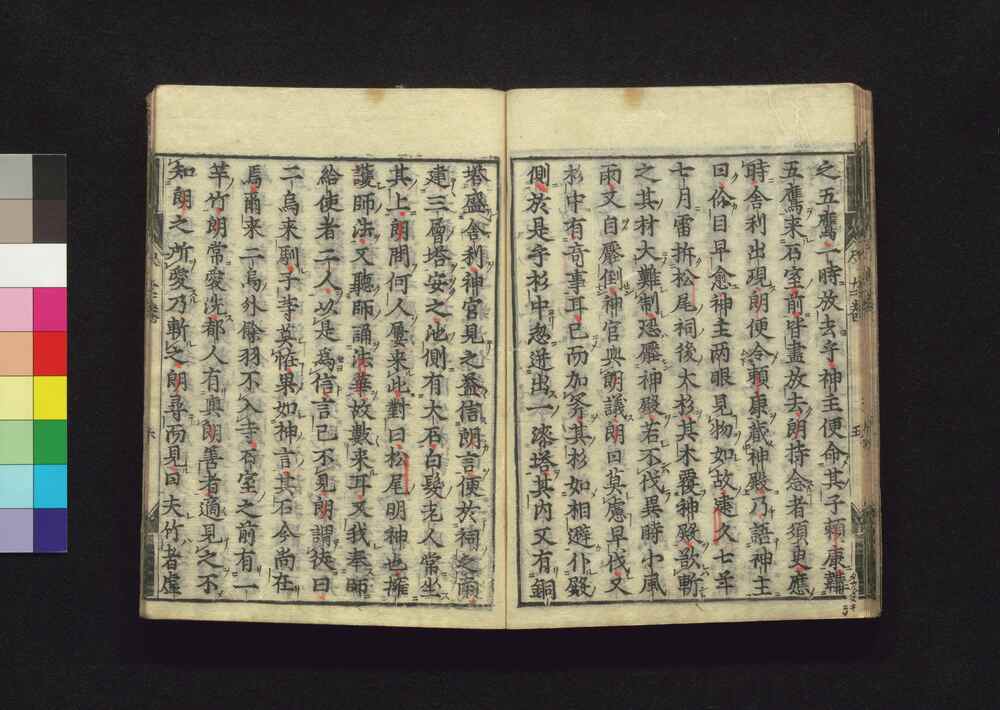 之五鷹一時放去乎神主便命其子頼康鞲
五鷹来石室前皆盡放去朗持念者須臾應
時舎利出現朗便令頼康蔵神殿乃語神主
曰俗目早愈神主両眼見物如故建久七年
七月雷拆松尾祠後大杉其木覆神殿欲斬
之其材大難制恐壓神殿若不伐異時小風
雨又自壓倒神官與朗議朗曰莫慮早伐又
杉中有竒事耳已而加斧其杉如相避仆殿
側於是乎杉中忽迸出一漆塔其内又有銅
塔盛舎利神官見之益信朗言便於祠之南
建三層塔安之池側有大石白髮老人常坐
其上朗問何人屢来此對曰松尾明神也擁
護師法又聽師誦法華故數来耳又我奉師
給使者二人以是為信言已不見朗謂徒曰
二烏来馴子等莫恠果如神言其石今尚在
焉爾来二烏外餘羽不入寺石室之前有一
竿竹朗常愛洗都人有與朗善者適見之不
知朗之所愛乃斬之朗尋而見曰夫竹者虚